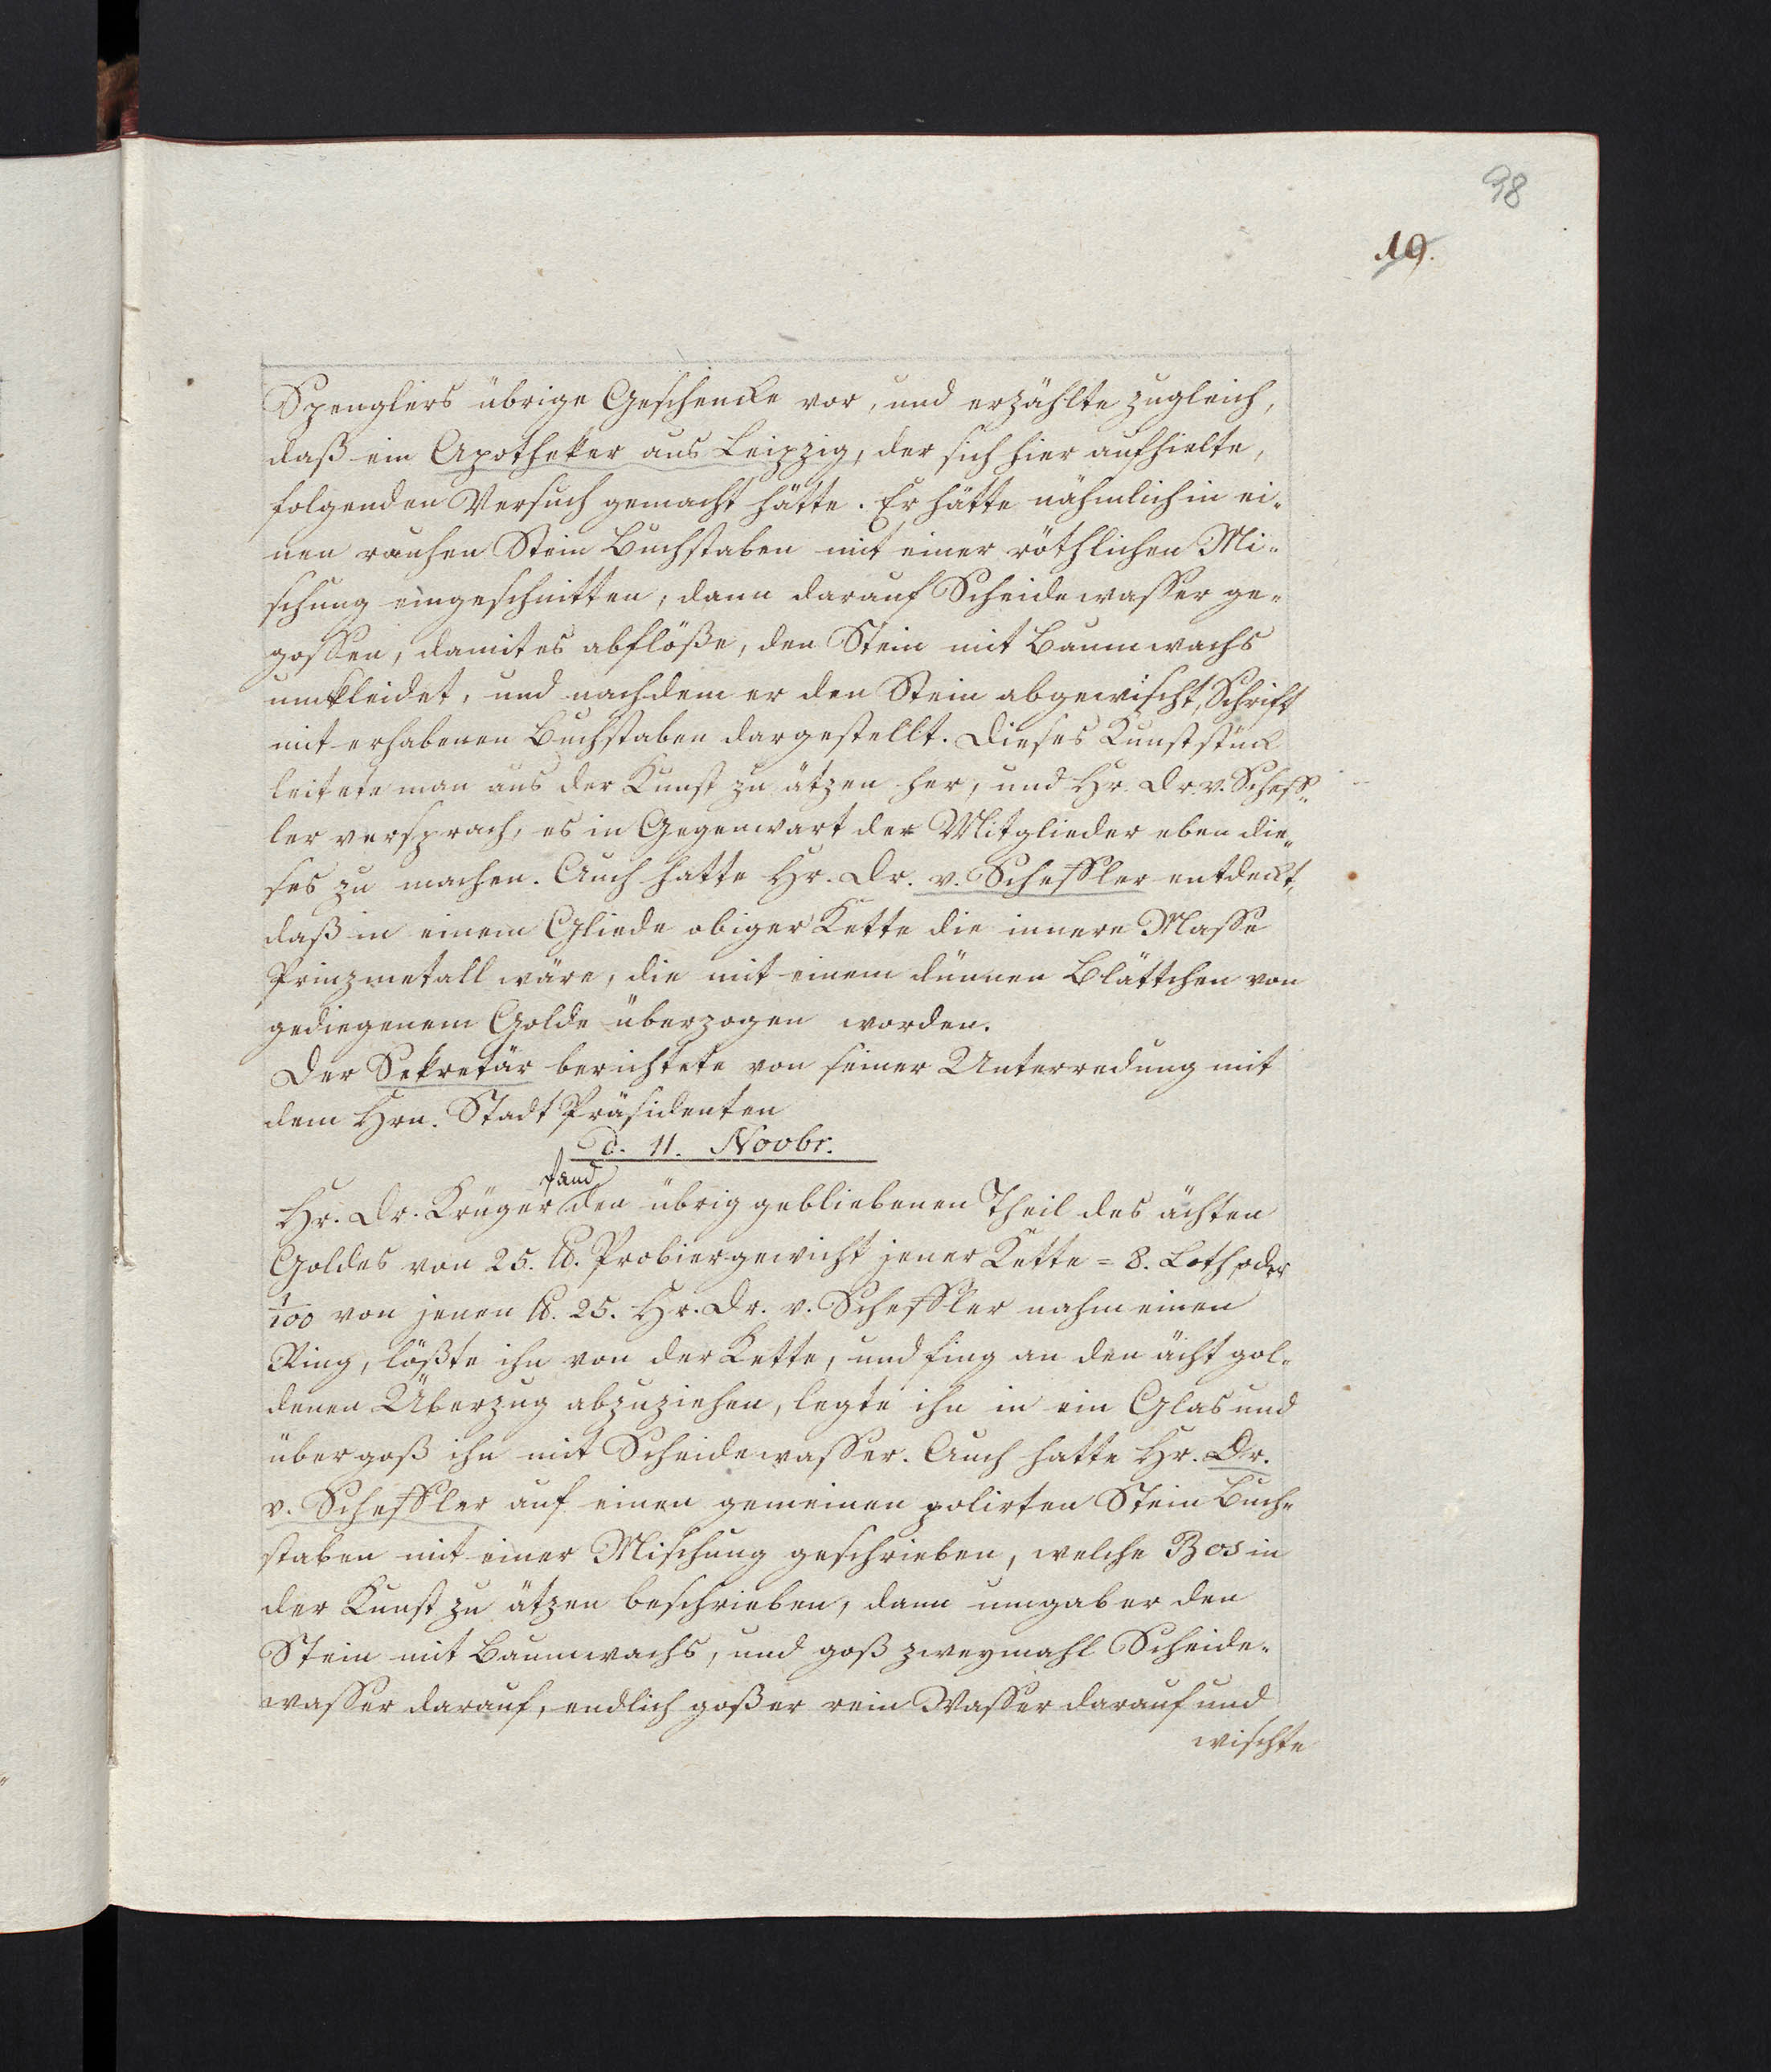 98
19.
Spenglers übrige Geschencke vor, und erzählte zugleich,
daß ein Apotheker aus Leipzig, der sich hier aufhielte,
folgenden Versuch gemacht hätte. Er hätte nähmlich in ei-
nen rauhen Stein Buchstaben mit einer röthlichen Mi-
schung eingeschnitten, dann darauf Scheidewasser ge-
gossen, damit es abflöße, den Stein mit Baumwachs
umkleidet, und nachdem er den Stein abgewischt, Schrift
mit erhabenen Buchstaben dargestellt. Dieses Kunststück
leitete man aus der Kunst zu ätzen her, und Hr. Dr. v. Scheff-
ler versprach, es in Gegenwart der Mitglieder eben die-
ses zu machen. Auch hatte Hr. Dr. v. Scheffler entdekt,
daß in einem Gliede obiger Kette die innere Masse
Prinzmetall wäre, die mit einem dünnen Blättchen von
gediegenem Golde überzogen worden.
Der Sekretär berichtete von seiner Unterredung mit
dem Hrn. Stadt Präsidenten
d. 11. Novbr.
fand
Hr. Dr. Krüger den übrig gebliebenen Theil des ächten
Goldes von 25. ℔. Probiergewicht jener Kette = 8. Loth, oder
1/100 von jenen ℔. 25. Hr. Dr. v. Scheffler nahm einen
Ring, lößte ihn von der Kette, und fing an den ächt gol-
denen Überzug abzuziehen, legte ihn in ein Glas und
übergoß ihn mit Scheidewasser. Auch hatte Hr. Dr.
v. Scheffler auf einen gemeinen polirten Stein Buch-
staben mit einer Mischung geschrieben, welche Bos in
der Kunst zu ätzen beschrieben, dann umgab er den
Stein mit Baumwachs, und goß zweymahl Scheide-
wasser darauf, endlich goß er rein Wasser darauf und
wischte